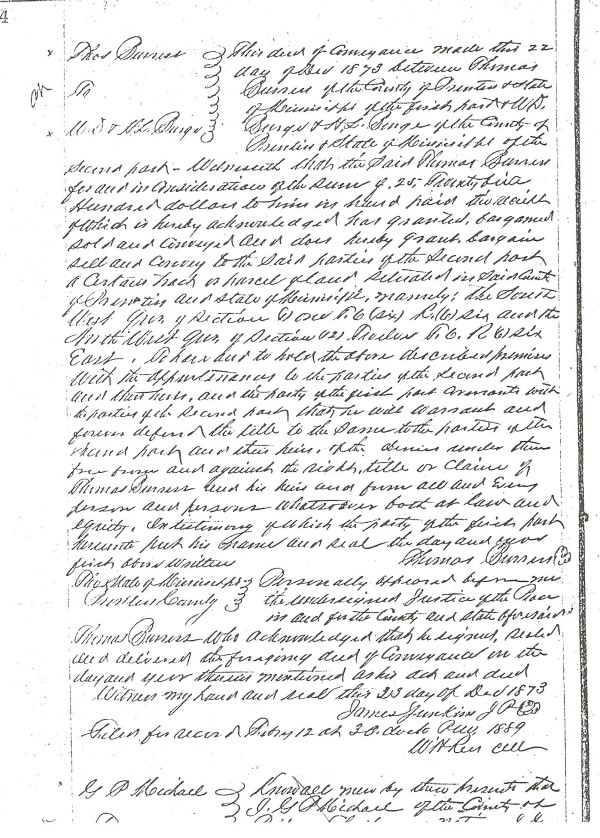 4
Thos Burress This deed of Conveyance made this 22
day of Dec 1873 between Thomas
To Burress of the County of Prentiss & State
of Mississippi of the first part & W.D.
W. D. & H. L. Burge Burge & H. L. Burge of the County of
Prentiss & State of Mississippi of the
second part – Witnesseth that the said Thomas Burress
for and in Consideration of the sum of 25 Twenty five
Hundred dollars to him in hand paid the receipt
of which is hereby acknowledged has granted, bargained
sold and conveyed and does hereby grant bargain
sell and convey to the said parties of the second part
a Certain tract or parcel of land situated in said County
of Prentiss and state of Mississippi, namely; the South
West Qur. of Section One T. 6 (six) R. (6) six and the
North West Qur. of Section (12) Twelve T. 6. R 6) six
East. To have and to hold the above described premises
with the appurtenances to the parties of the second part
and their heirs, and the party of the first part covenants with
the parties of the second part that he will warrant and
forever defend the title to the same to the parties of the
second part and their heirs, of the under them
free from and against the right, title or claim of
Thomas Burress and his heirs and from all and every
person and persons whatsoever both at law and
equity. In testimony of which the party of the first part
hereunto put his name and seal the day and year
first above written Thomas Burress
The State of Mississippi Personally appeared before me
Prentiss County the undersigned Justice of the Peace
in and for the County and state aforesaid
Thomas Burress who acknowledged that he signed, sealed
and delivered the foregoing deed of Conveyance on the
day and year therein mentioned as his act and deed
Witness my hand and seal this 23 day of Dec 1873
James Junkins J P
Filed for record Feby 12 at 3 O.clock 1889
W H Rees clk
G P Michael Know all men by these presents that
I. G P Michael of the County of